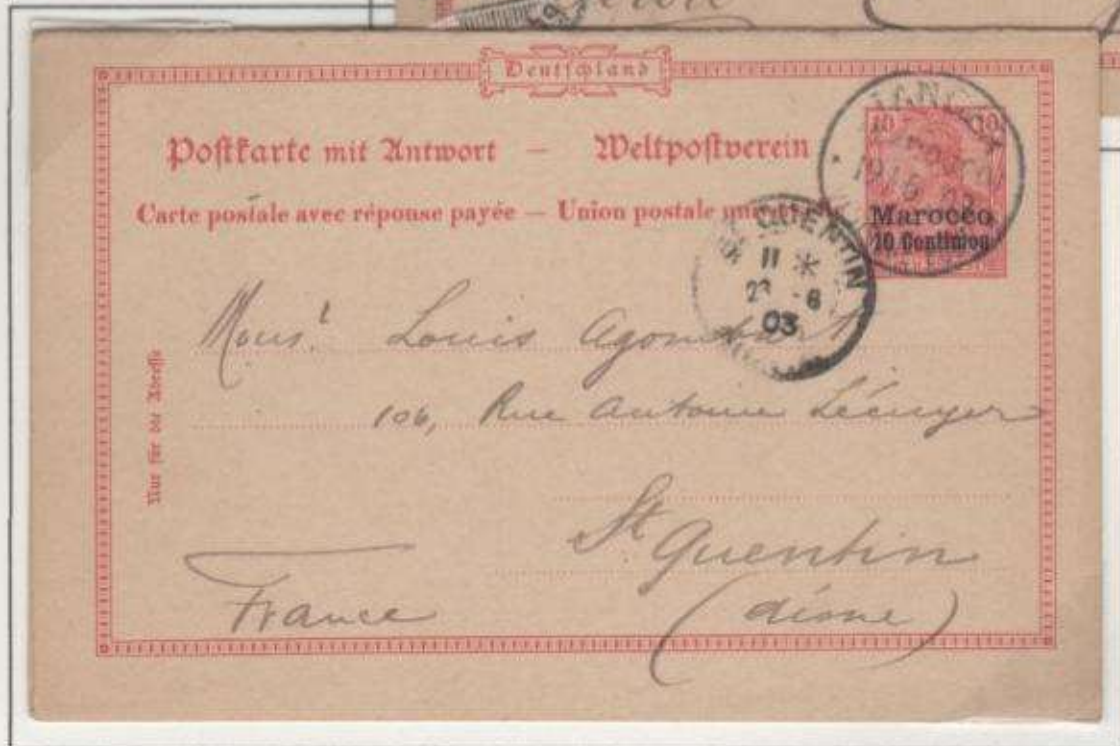 Deutschland
Postkarte mit Antwort — Weltpostverein
Carte postale avec réponse payée — Union postale
10 10
Marocco
10 Centimos
ST QUENTIN
11 *
03
Nur für die Adresse
Monsr Louis
106, Rue Antoine Lécuyer
St Quentin
(Aisne)
France